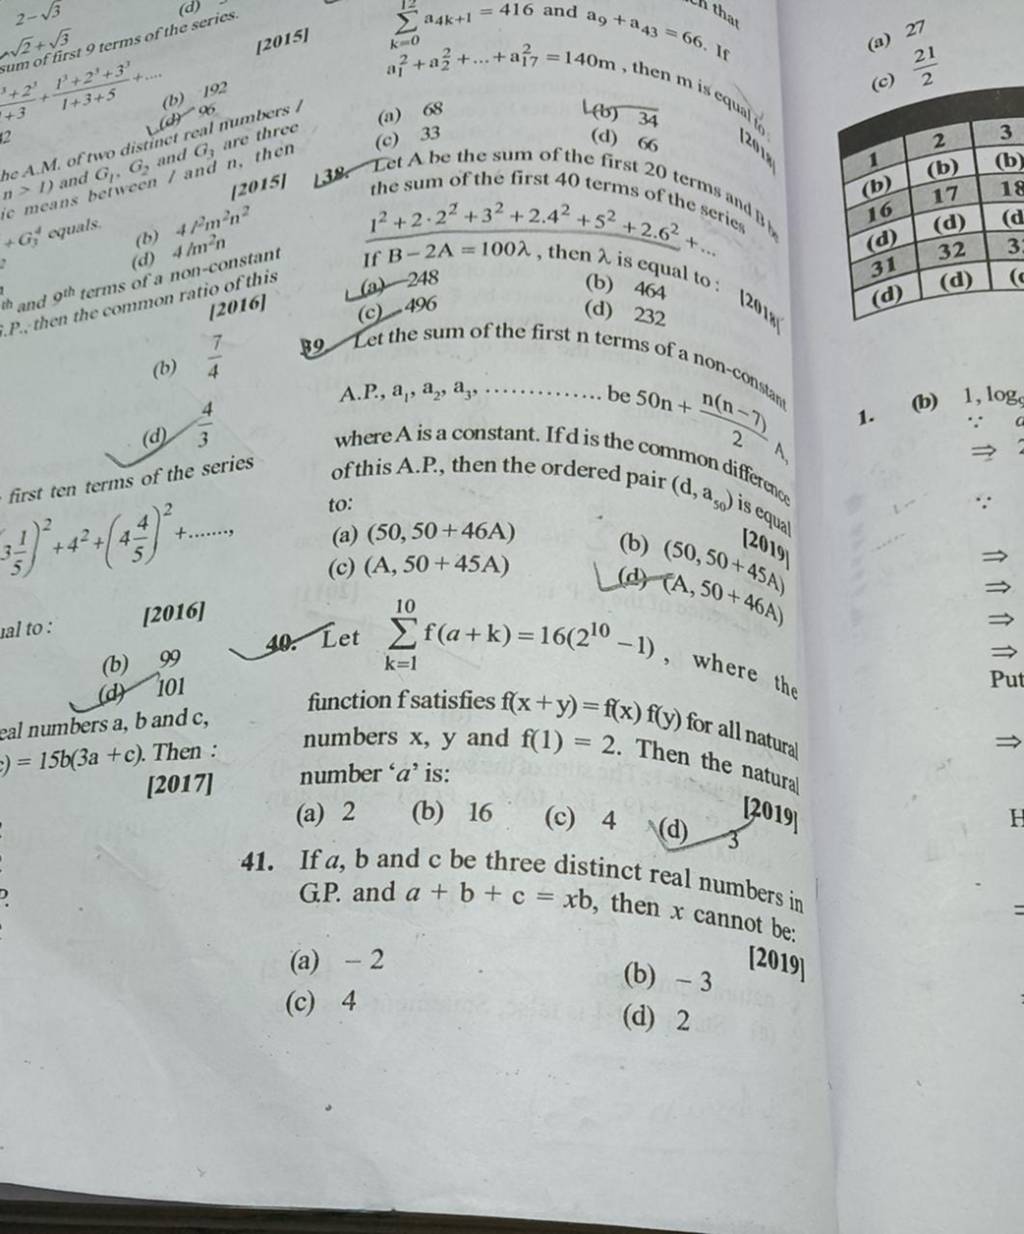 2-√3
(d)
√2+√3
sum of first 9 terms of the series.
[2015]
1³+2³/1+3 + 1³+2³+3³/1+3+5 +....
(b) 192
(d) 96
he A.M. of two distinct real numbers l
n > 1) and G₁, G₂ and G₃ are three
ic means between l and n, then
+ G₃⁴ equals.
[2015]
(b) 4 l²m²n²
(d) 4 lm²n
th and 9th terms of a non-constant
G.P., then the common ratio of this
[2016]
(b) 7/4
(d) 4/3
first ten terms of the series
(3 1/5)² + 4² + (4 4/5)² + .......,
[2016]
ual to :
(b) 99
(d) 101
eal numbers a, b and c,
c) = 15b(3a + c). Then :
[2017]
that
12 ∑ k=0 a4k+1 = 416 and a9 + a43 = 66. If
a₁² + a₂² + ... + a₁₇² = 140m, then m is equal to
[2018]
(a) 68
(b) 34
(c) 33
(d) 66
38. Let A be the sum of the first 20 terms and B be
the sum of the first 40 terms of the series
1² + 2·2² + 3² + 2.4² + 5² + 2.6² + ...
If B – 2A = 100λ, then λ is equal to :
[2018]
(a) 248
(b) 464
(c) 496
(d) 232
39 Let the sum of the first n terms of a non-constant
A.P., a₁, a₂, a₃, .............. be 50n + n(n – 7)/2 A,
where A is a constant. If d is the common difference
of this A.P., then the ordered pair (d, a₅₀) is equal
to:
[2019]
(a) (50, 50 + 46A)
(b) (50, 50 + 45A)
(c) (A, 50 + 45A)
(d) (A, 50 + 46A)
40. Let 10 ∑ k=1 f(a + k) = 16(2¹⁰ – 1), where the
function f satisfies f(x + y) = f(x) f(y) for all natural
numbers x, y and f(1) = 2. Then the natural
number ‘a’ is:
[2019]
(a) 2 (b) 16 (c) 4 (d) 3
41. If a, b and c be three distinct real numbers in
G.P. and a + b + c = xb, then x cannot be:
[2019]
(a) – 2
(b) – 3
(c) 4
(d) 2
(a) 27
(c) 21/2
1 2 3
(b) (b) (b)
16 17 18
(d) (d) (d
31 32 3
(d) (d) (c
1. (b) 1, log
∵
⇒
∵
⇒
⇒
⇒
⇒
Put
⇒
H
=